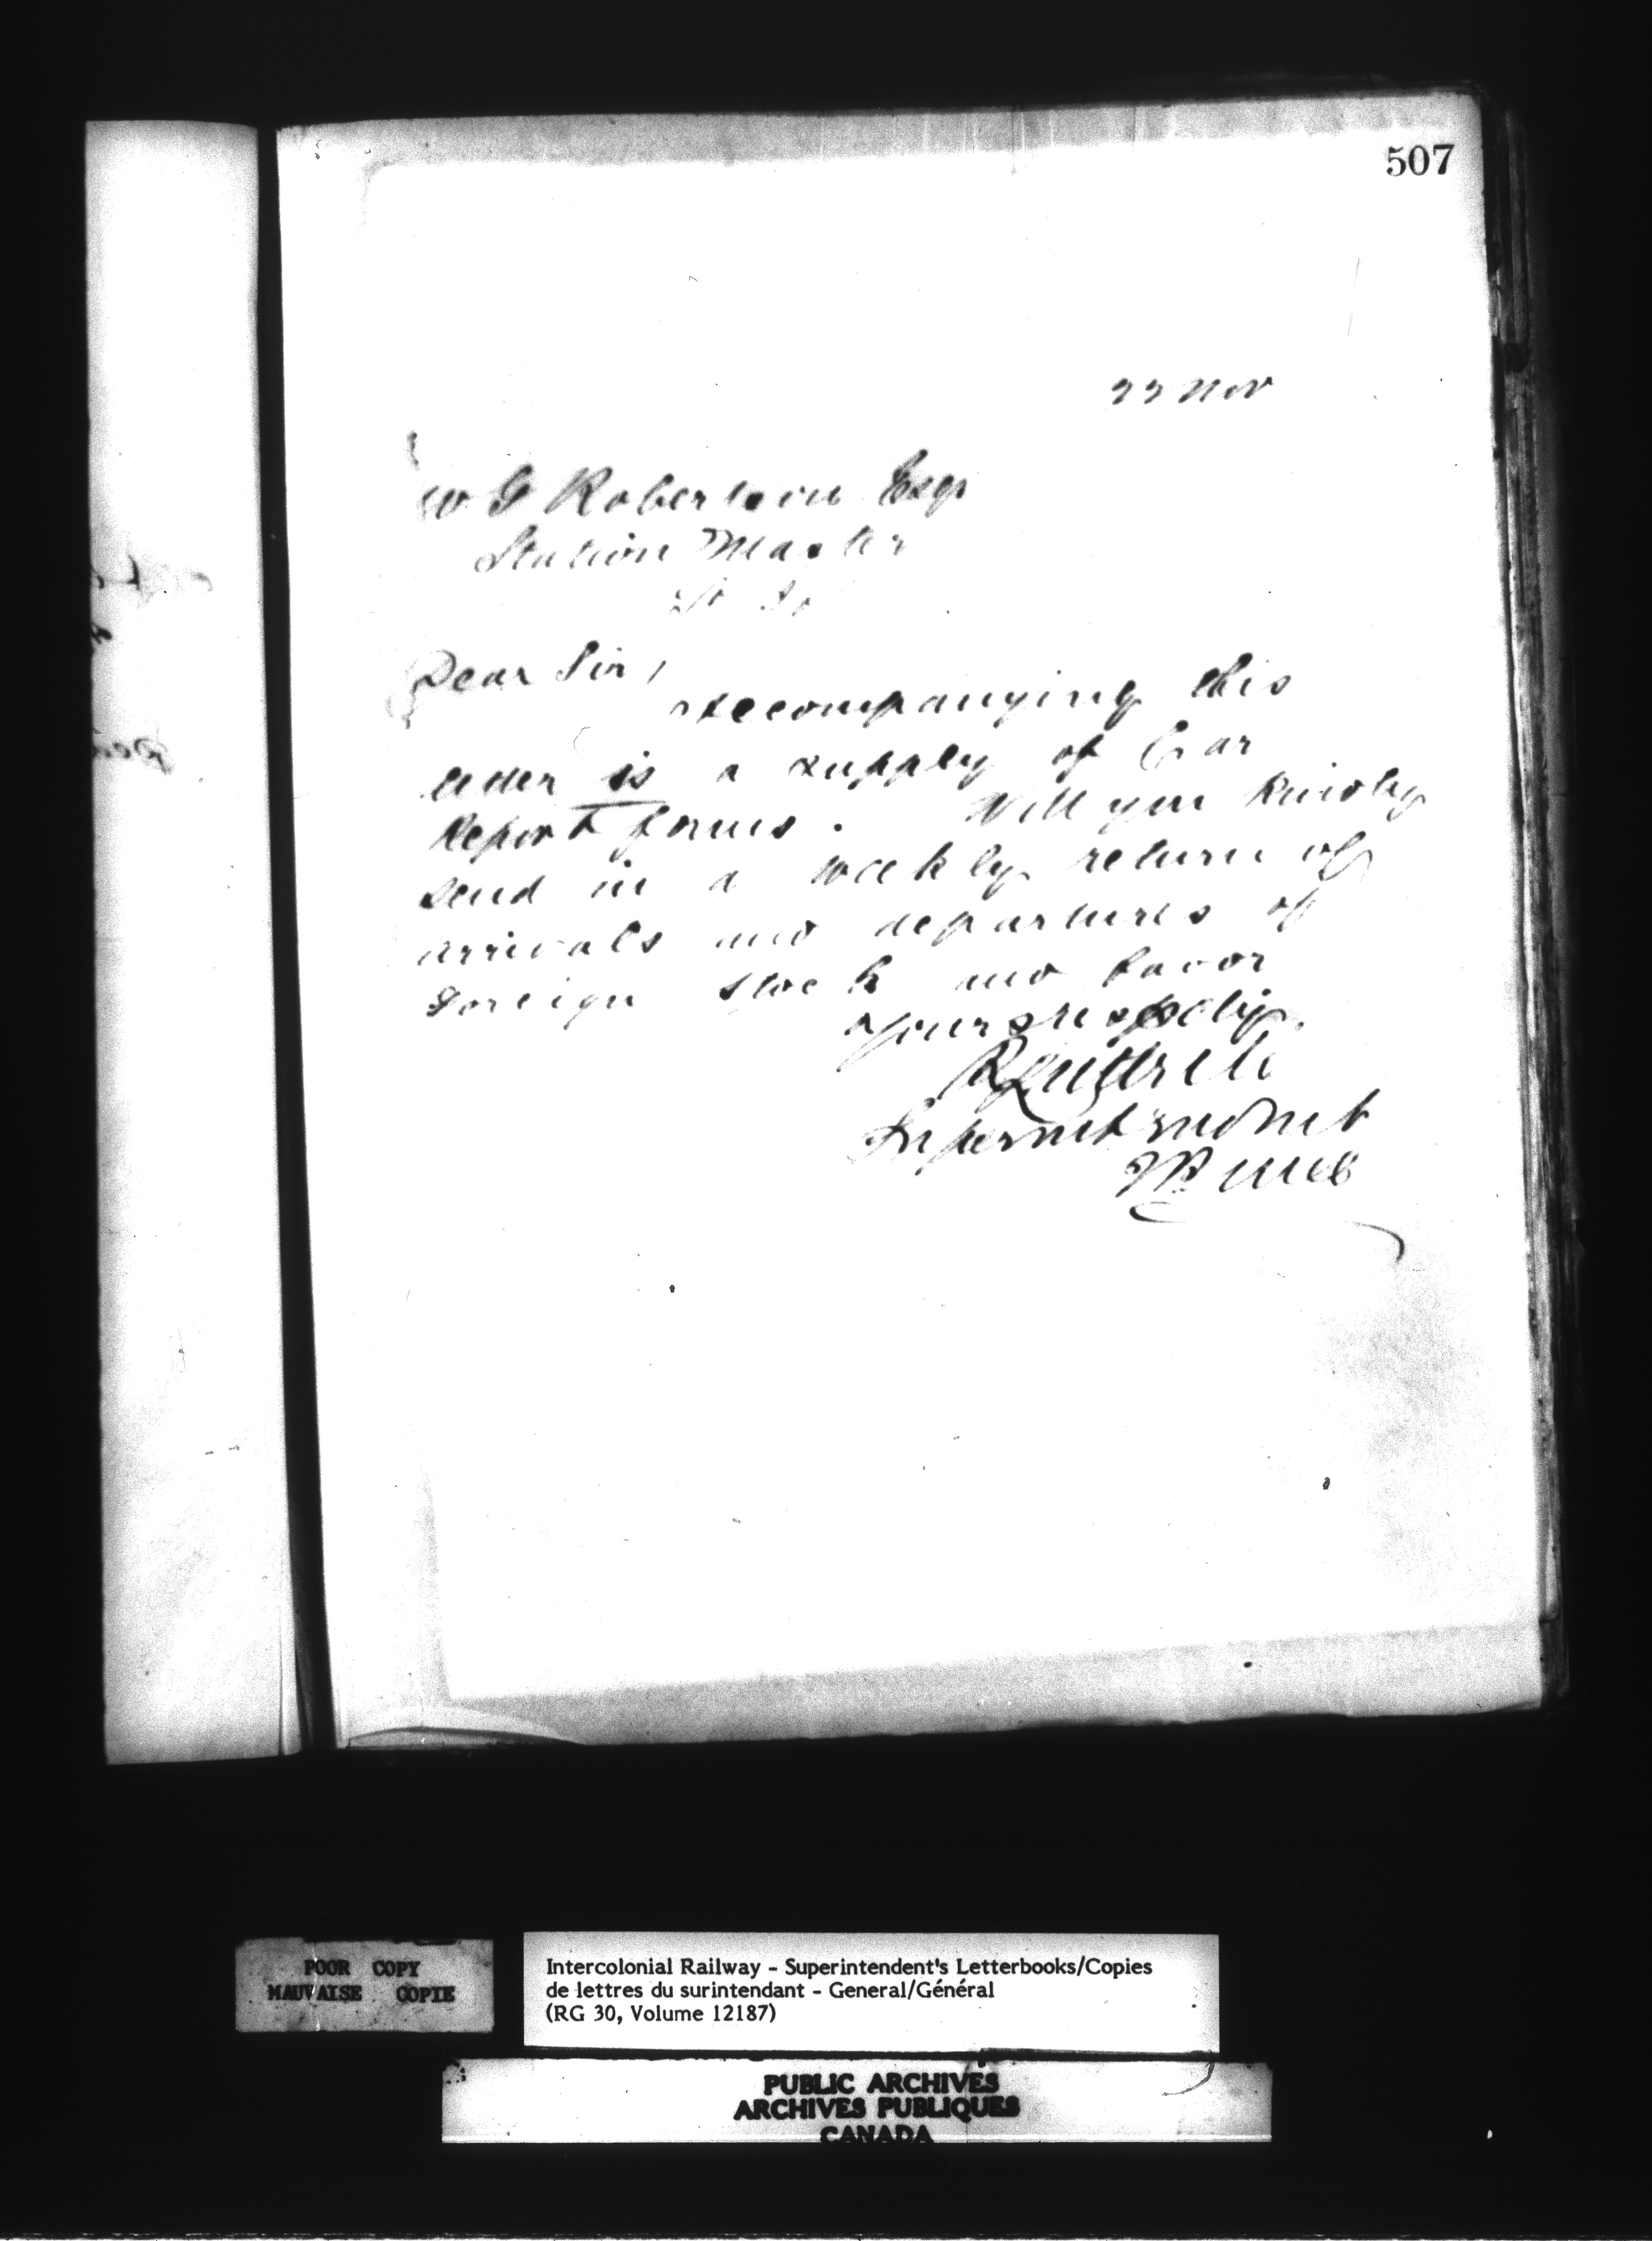 507
22 Nov
W G Robertson Esqr
Station Master
St Jo
Dear Sir,
Accompanying this
letter is a supply of Car
Report forms. Will you kindly
send in a weekly return of
arrivals and departures of
Foreign stock and favor
Yours respectly.
Superintendent
POOR COPY
MAUVAISE COPIE
Intercolonial Railway - Superintendent's Letterbooks/Copies
de lettres du surintendant - General/Général
(RG 30, Volume 12187)
PUBLIC ARCHIVES
ARCHIVES PUBLIQUES
CANADA